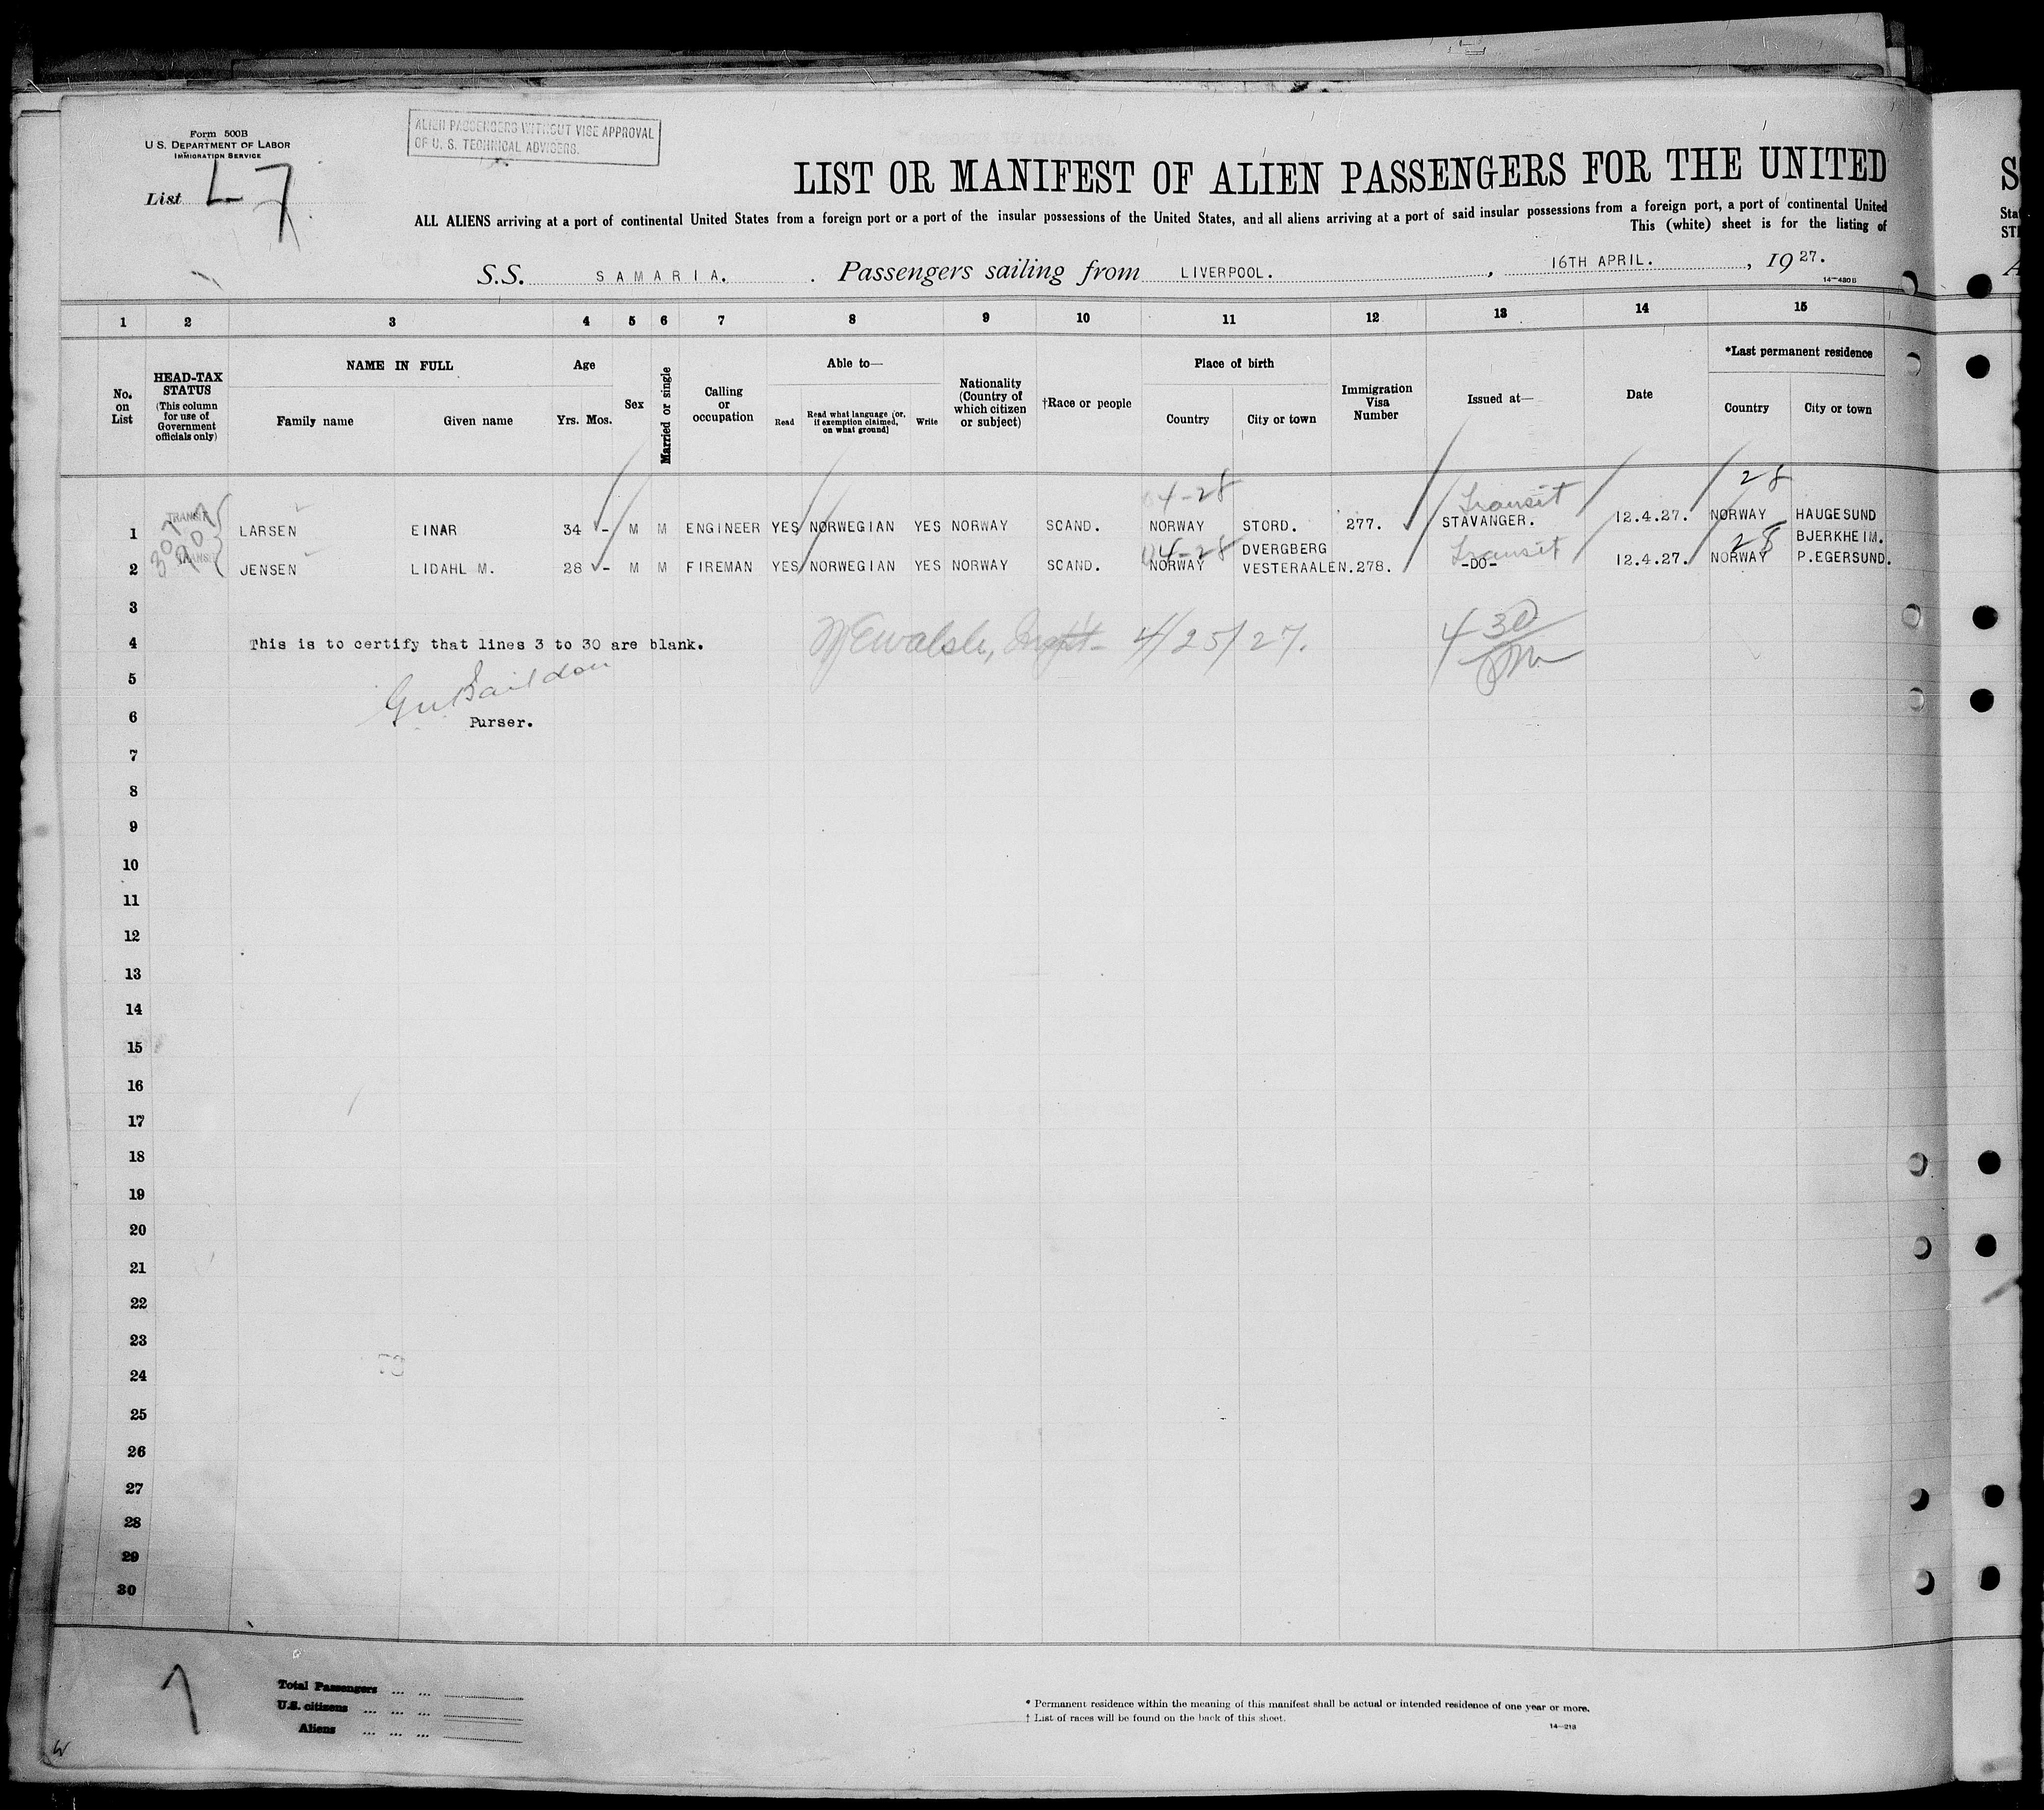 Form 500B
U. S. DEPARTMENT OF LABOR
IMMIGRATION SERVICE
List L 7
ALIEN PASSENGERS WITHOUT VISE APPROVAL
OF U. S. TECHNICAL ADVISERS.
LIST OR MANIFEST OF ALIEN PASSENGERS FOR THE UNITED
ALL ALIENS arriving at a port of continental United States from a foreign port or a port of the insular possessions of the United States, and all aliens arriving at a port of said insular possessions from a foreign port, a port of continental United
This (white) sheet is for the listing of
S.S. SAMARIA. Passengers sailing from LIVERPOOL. , 16TH APRIL. , 19 27.
14—430B
1 2 3 4 5 6 7 8 9 10 11 12 13 14 15
No. on List
HEAD-TAX STATUS (This column for use of Government officials only)
NAME IN FULL
Family name Given name
Age
Yrs. Mos.
Sex
Married or single
Calling or occupation
Able to—
Read Read what language (or, if exemption claimed, on what ground) Write
Nationality (Country of which citizen or subject)
†Race or people
Place of birth
Country City or town
Immigration Visa Number
Issued at—
Date
*Last permanent residence
Country City or town
04-28 Transit 28
1 TRANSIT LARSEN EINAR 34 - M M ENGINEER YES NORWEGIAN YES NORWAY SCAND. NORWAY STORD. 277. STAVANGER. 12.4.27. NORWAY HAUGESUND
04-28 DVERGBERG Transit 28 BJERKHEIM.
2 TRANSIT JENSEN LIDAHL M. 28 - M M FIREMAN YES NORWEGIAN YES NORWAY SCAND. NORWAY VESTERAALEN. 278. -DO- 12.4.27. NORWAY P.EGERSUND.
3
4 This is to certify that lines 3 to 30 are blank. Walsh, 4/25/27. 4 30
5
6 Purser.
7
8
9
10
11
12
13
14
15
16
17
18
19
20
21
22
23
24
25
26
27
28
29
30
7
Total Passengers ... ...
U.S. citizens ... ... ...
Aliens ... ... ...
* Permanent residence within the meaning of this manifest shall be actual or intended residence of one year or more.
† List of races will be found on the back of this sheet.
14—213
W